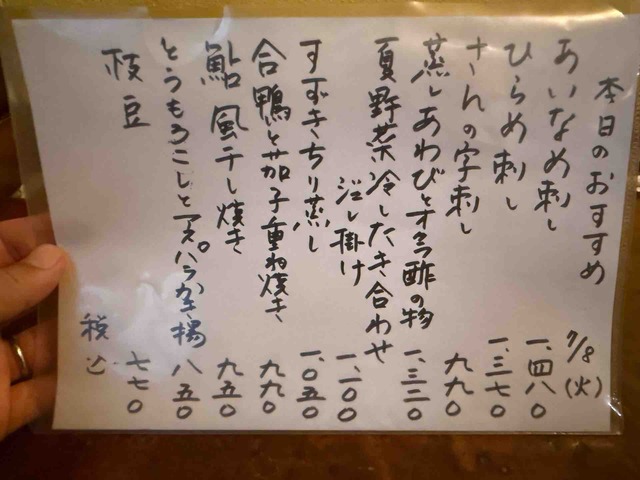 本日のおすすめ 7/8(火)
あいなめ刺し 一、四八〇
ひらめ刺し 一、三七〇
さんの字刺し 九九〇
蒸しあわびとオクラ酢の物 一、三二〇
夏野菜冷したき合わせ
泡し掛け 一、一〇〇
すずきちり蒸し 一、〇五〇
合鴨と茄子重ね焼き 九九〇
鮎風干し焼き 九五〇
とうもろこしとアスパラかき揚 八五〇
枝豆 七七〇
税込